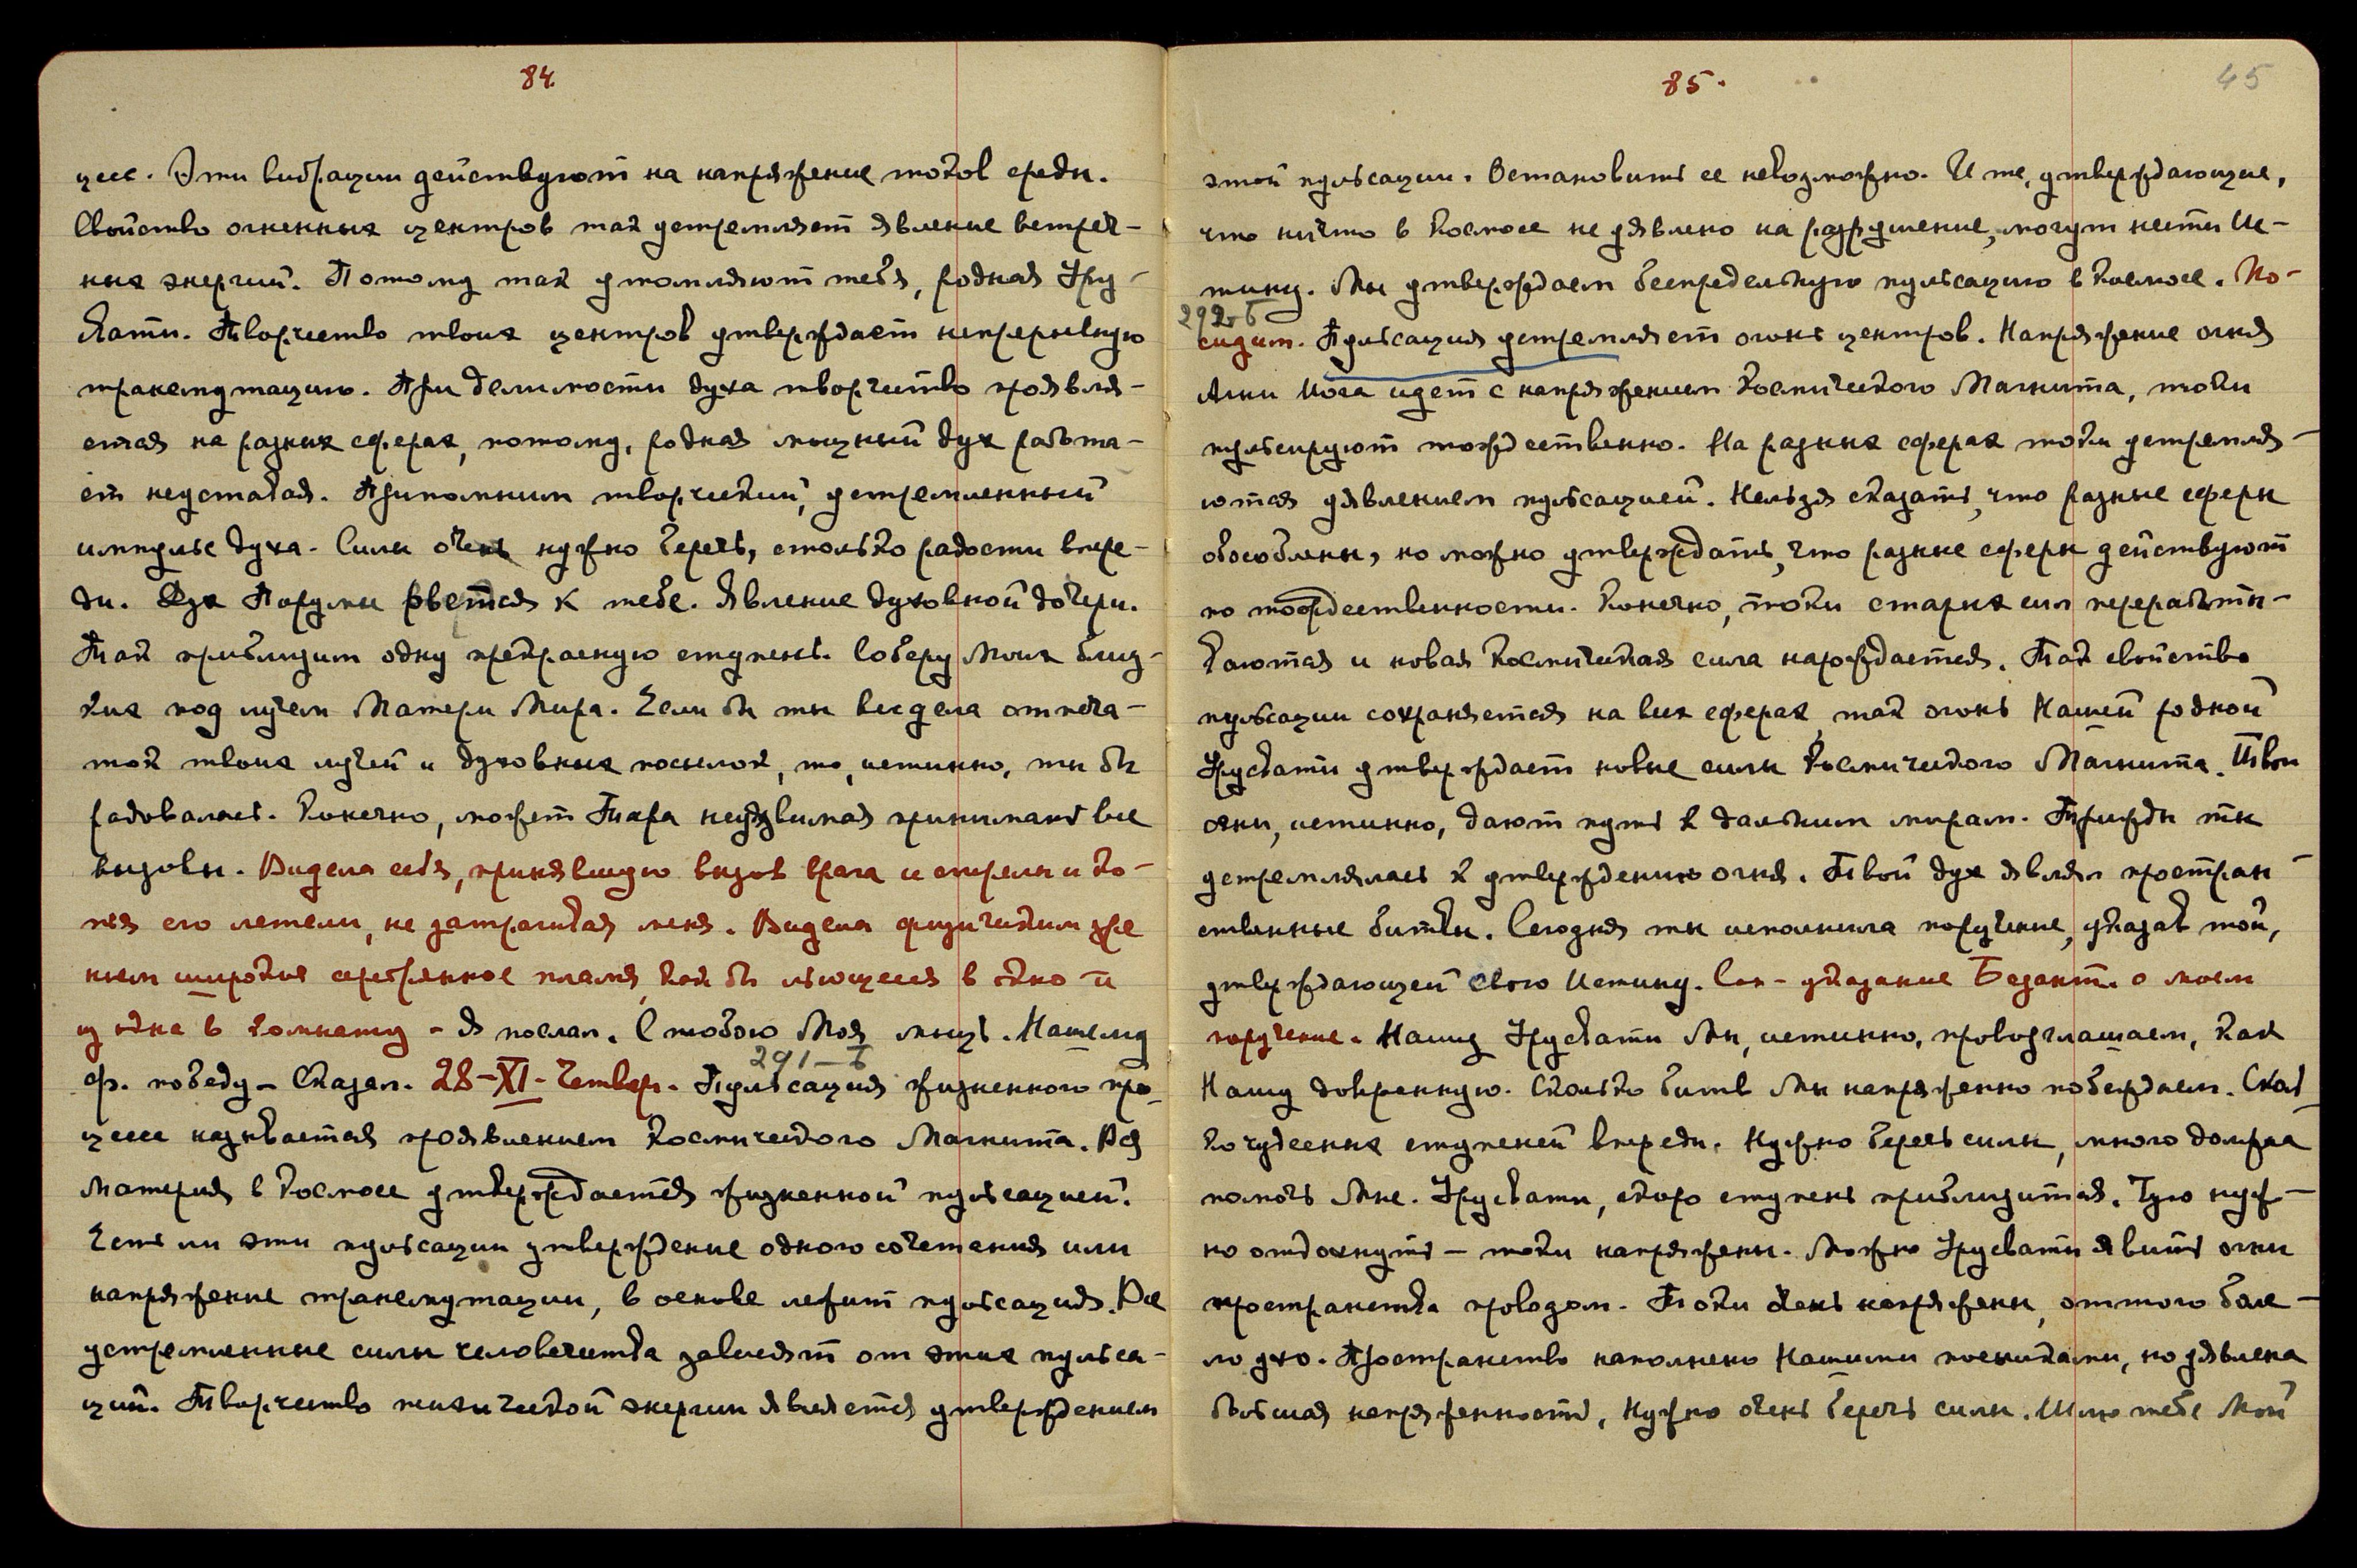 84.
цесс. Эти вибрации действуют на напряжение токов среды.
Свойство огненных центров так устремляет явление встреч-
ных энергий. Потому так утомляют тебя, родная Уру-
свати. Творчество твоих центров утверждает непрерывную
трансмутацию. При делимости духа творчество проявля-
ется на разных сферах, потому, родная мощный дух работа-
ет неуставая. Припомним творческий, устремленный
импульс духа. Силы очень нужно беречь, столько радости впере-
ди. Дух Порумы рвется к тебе. Явление духовной дочери.
Так приблизит одну прекрасную ступень. Соберу Моих близ-
ких под лучем Матери Мира. Если бы ты видела отпеча-
ток твоих лучей и духовных посылок, то, истинно, ты бы
радовалась. Конечно, может Тара неуязвимая принимать все
вызовы. Видела себя, принявшую вызов врага и стрелы и ко-
пья его летели, не затрагивая меня. Видела физическим зре
нием широкое серебрянное пламя, как бы льющееся в окно и
из окна в комнату - Я послал. С тобою Моя мощь. Нашему
Ф. победу - Сказал. 28-XI- Четвер. Пульсация жизненного про-
291-Б
цесса называется проявлением Космического Магнита. Вся
Материя в Космосе утверждается жизненной пульсацией.
Есть ли эти пульсации утверждение одного сочетания или
напряжение трансмутации, в основе лежит пульсация. Все
устремленные силы человечества зависят от этих пульса-
ций. Творчество психической энергии является утверждением
85.
45
этой пульсации. Остановить ее невозможно. И те, утверждающие,
что ничто в Космосе не уявлено на разрушение, могут нести Ис-
тину. Мы утверждаем беспредельную пульсацию в Космосе. По-
292-Б
сидит. Пульсация устремляет огонь центров. Напряжение огня
Агни Йога идет с напряжением Космического Магнита, токи
пульсируют тождественно. На разных сферах токи устремля-
ются уявлением пульсацией. Нельзя сказать, что разные сферы
обособлены, но можно утверждать, что разные сферы действуют
по тождественности. Конечно, токи старых сил перерабаты-
ваются и новая Космическая сила нарождается. Так свойство
пульсации сохраняется на всех сферах, так огонь Нашей родной
Урусвати утверждает новые силы Космического Магнита. Твои
огни, истинно, дают путь к дальним мирам. Трижды ты
устремлялась к утверждению огня. Твой дух являл простран
ственные битвы. Сегодня ты исполнила поручение, указав той,
утверждающей свою Истину. Сон - указание Безант. о моем
поручение. Нашу Урусвати Мы, истинно, провозглашаем, как
Нашу доверенную. Сколько битв Мы напряженно побеждаем. Скол
ко чудесных ступеней впереди. Нужно беречь силы, много должна
помочь Мне. Урусвати, скоро ступень приблизится. Чую нуж-
но отдохнуть - токи напряжены. Можно Урусвати явить огни
пространства проводом. Токи очень напряжены, оттого боле-
ло ухо. Пространство наполнено Нашими посылками, но уявлена
большая напряженность, нужно очень беречь силы. Шлю тебе Мой